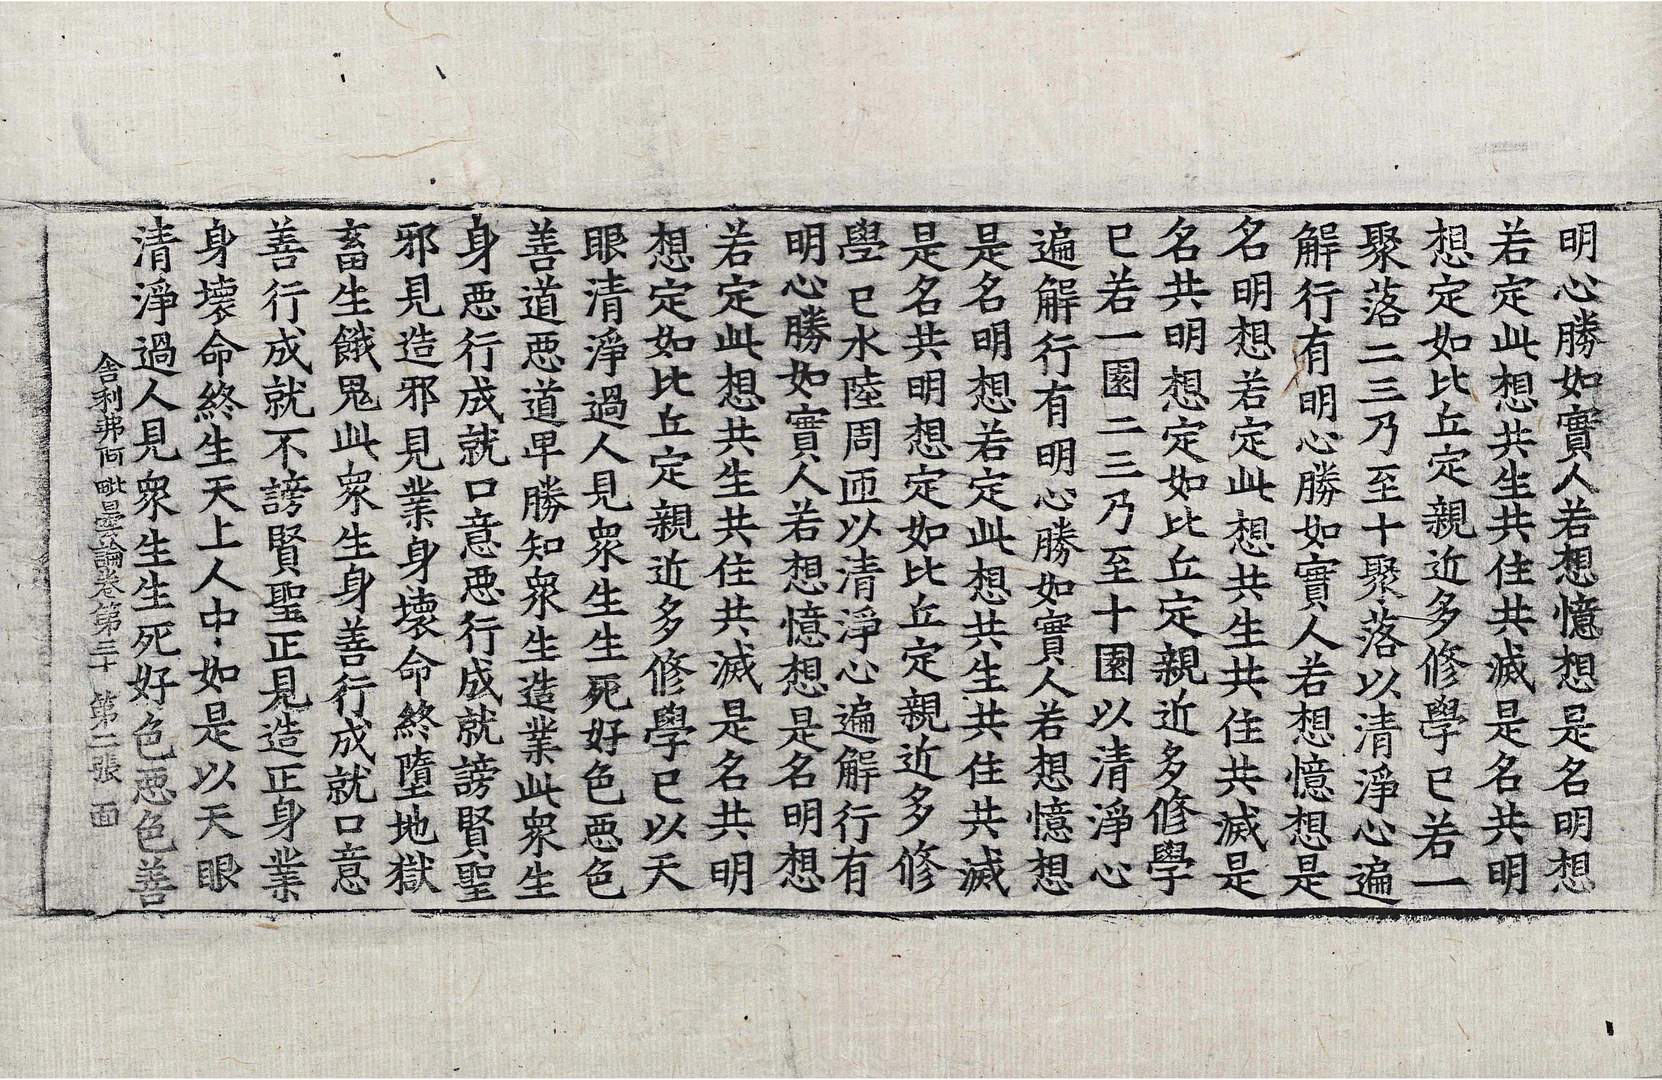 明心勝如實人若想憶想是名明想
若定此想共生共住共滅是名共明
想定如比丘定親近多修學已若一
聚落二三乃至十聚落以清淨心遍
解行有明心勝如實人若想憶想是
名明想若定此想共生共住共滅是
名共明想定如比丘定親近多修學
已若一園二三乃至十園以清淨心
遍解行有明心勝如實人若想憶想
是名明想若定此想共生共住共滅
是名共明想定如比丘定親近多修
學已水陸周匝以清淨心遍解行有
明心勝如實人若想憶想是名明想
若定此想共生共住共滅是名共明
想定如比丘定親近多修學已以天
眼清淨過人見衆生生死好色惡色
善道惡道卑勝知衆生造業此衆生
身惡行成就口意惡行成就謗賢聖
邪見造邪見業身壞命終墮地獄
畜生餓鬼此衆生身善行成就口意
善行成就不謗賢聖正見造正身業
身壞命終生天上人中如是以天眼
清淨過人見衆生生死好色惡色善
舍利弗阿毗曇論卷第三十 第二張 面